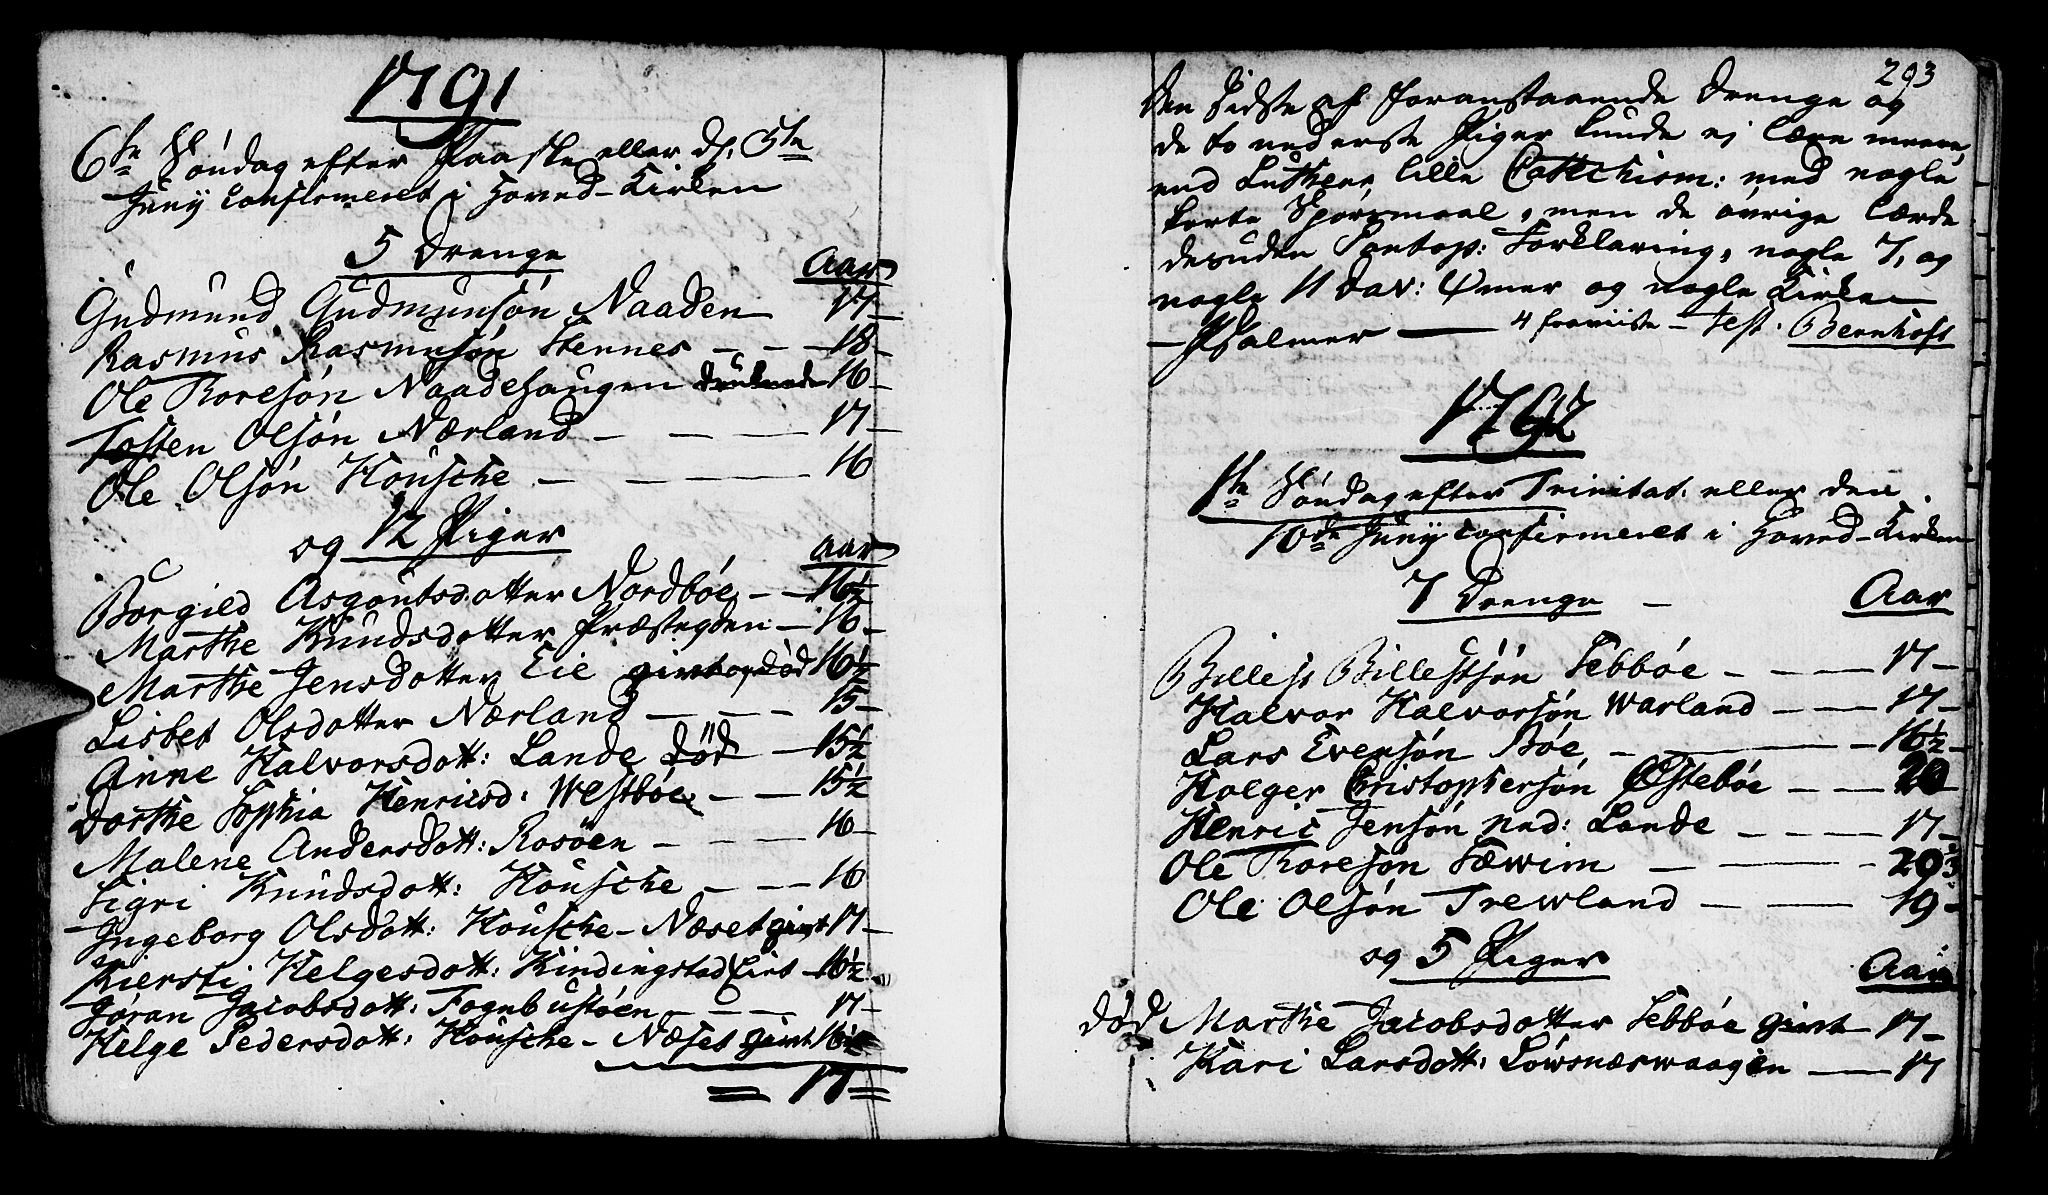 1791
6te Søndag efter Paaske eller d. 5te
Juny Confirmeret i Hoved-Kirken
5 Drenge
Aar
Gudmund Gudmunsøn Naaden 17
Rasmus Rasmusøn Hennes - - - 18
Ole Boresøn Naadehaugen druknede 16
Tosten Olsøn Nærland - - - 17
Ole Olsøn Housche - - 16
og 12 Piger
Aar
Borgild Asgoutsdotter Nordbøe - - 16½
Marthe Knudsdotter Præstegden - 16
Marthe Jensdotter Eie givt og død 16½
Lisbet Olsdotter Nærland - - - 15
Anne Halvorsdott: Lande død - 15½
Dorthe Sophia Henricsd: Westbøe - - 15½
Malene Andersdott: Rosøen - - - 16
Sigri Knudsdott: Housche - - 16
Ingeborg Olsdott: Housche - Næset givt 17
Kiersti Helgesdott: Kindingstad - 16½
Jøran Jacobsdott: Fognbustøen - - - 17
Helge Pedersdott: Housche - Næset givt 16½
= 17 =
293
Den Sidste af foranstaaende Drenge og
de to nederste Piger kunde ej lære meere,
end Luthers lille Catechism: med nogle
korte Spørsmaal, men de øvrige lærde
desuden Pontop: Forklaring, nogle 7, og
nogle 11 Dav: Ømer og nogle Kirken
Psalmer - 4 - Test. Bernhoft
1792
1te Søndag efter Trinitat. eller den
10de Juny Confirmeret i Hoved-Kirken
7 Drenge -
Aar
Billest Billestsøn Sebbøe - - - 17
Halvor Halvorsøn Warland - - 17
Lars Evensøn Bøe - - - 16½
Holger Christophersøn Østebøe - - 20
Henric Jensøn ned: Lande - - - 17
Ole Boresøn Sæwim - - - 20⅓
Ole Olsøn Trewland - - 19
og 5 Piger
Aar
død Marthe Jacobsdotter Sebbøe givt 17
Kari Larsdott: Løwsnæswaagen - 17